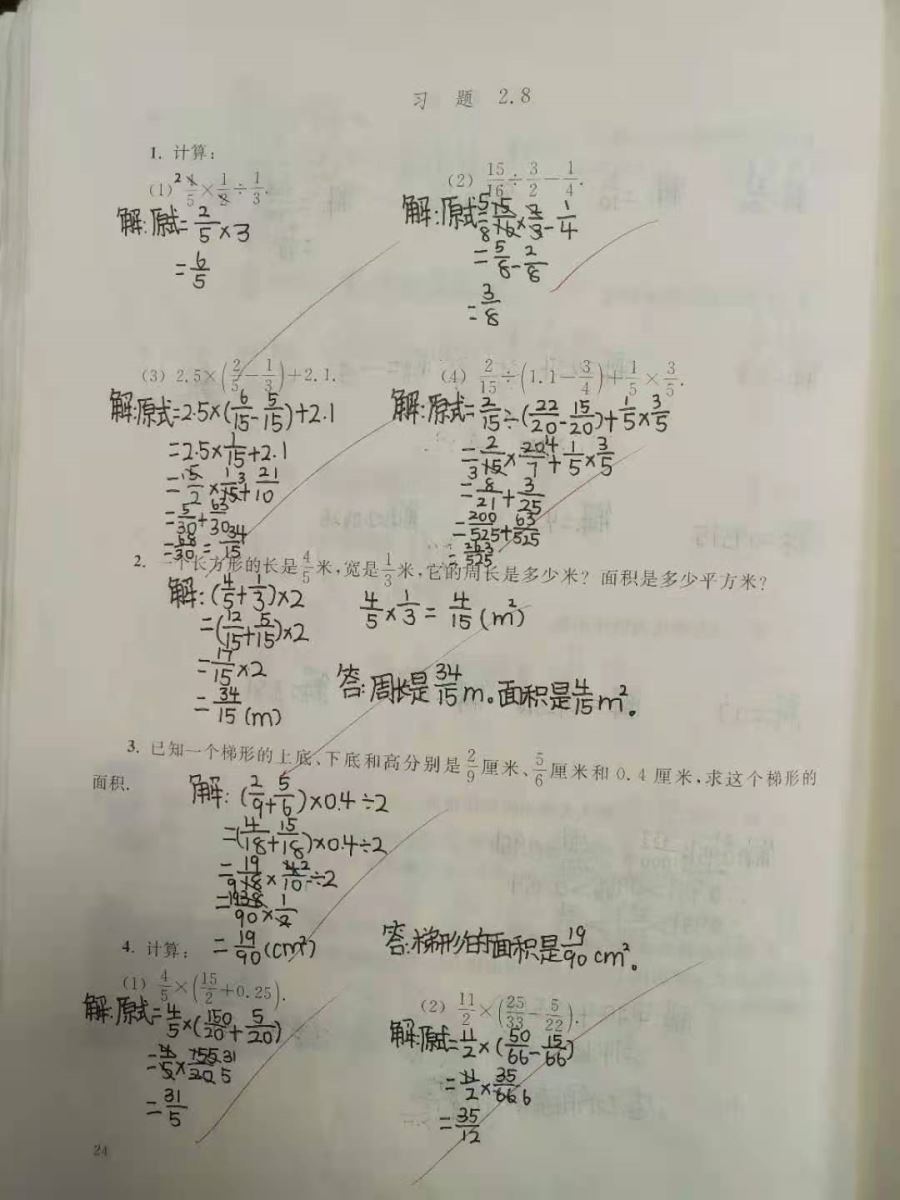 习 题 2.8
1. 计算：
(1) 4/5×1/2÷1/3.
(2) 15/16÷3/2−1/4.
解:原式=2/5×3
=6/5
解:原式=15/16×2/3−1/4
=5/8−2/8
=3/8
(3) 2.5×(2/5−1/3)+2.1.
(4) 2/15÷(1.1−3/4)+1/5×3/5.
解:原式=2.5×(6/15−5/15)+2.1
=2.5×1/15+2.1
=5/2×1/15+21/10
=5/30+63/30
=68/30=34/15
解:原式=2/15÷(22/20−15/20)+1/5×3/5
=2/15×20/7+1/5×3/5
=8/21+3/25
=200/525+63/525
=263/525
2. 一个长方形的长是4/5米,宽是1/3米,它的周长是多少米？面积是多少平方米？
解:(4/5+1/3)×2
=(12/15+5/15)×2
=17/15×2
=34/15(m)
4/5×1/3=4/15(m²)
答:周长是34/15m。面积是4/15m²。
3. 已知一个梯形的上底、下底和高分别是2/9厘米、5/6厘米和0.4厘米,求这个梯形的
面积.
解:(2/9+5/6)×0.4÷2
=(4/18+15/18)×0.4÷2
=19/18×4/10÷2
=38/90×1/2
=19/90(cm²)
答:梯形的面积是19/90cm²。
4. 计算：
(1) 4/5×(15/2+0.25).
(2) 11/2×(25/33−5/22).
解:原式=4/5×(150/20+5/20)
=4/5×155/20
=31/5
解:原式=11/2×(50/66−15/66)
=11/2×35/66
=35/12
24